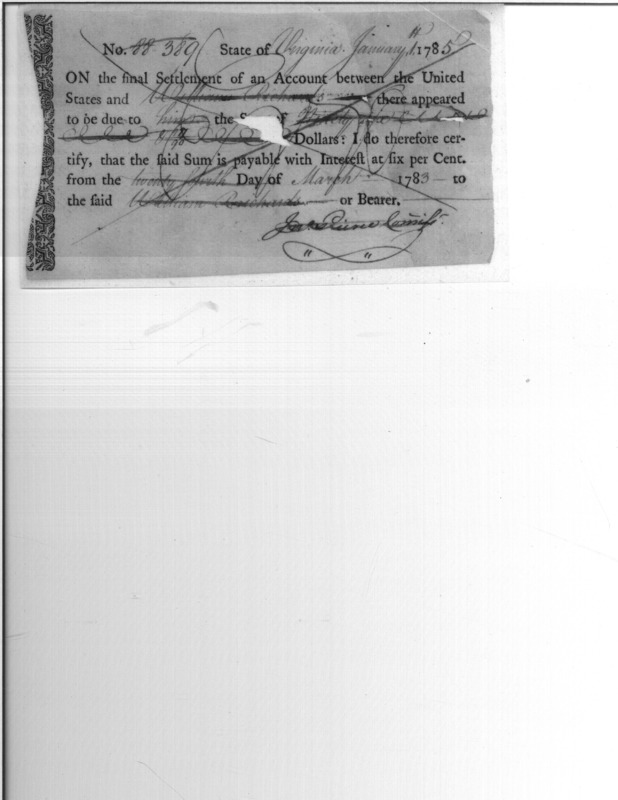 No. 88.389 State of Virginia January 1785
ON the final Settlement of an Account between the United
States and William Richards there appeared
to be due to him the of Fifty six
Dollars: I do therefore cer-
tify, that the said Sum is payable with Interest at six per Cent.
from the twenty fourth Day of March 1783 to
the said William Richards or Bearer.
Commissr.